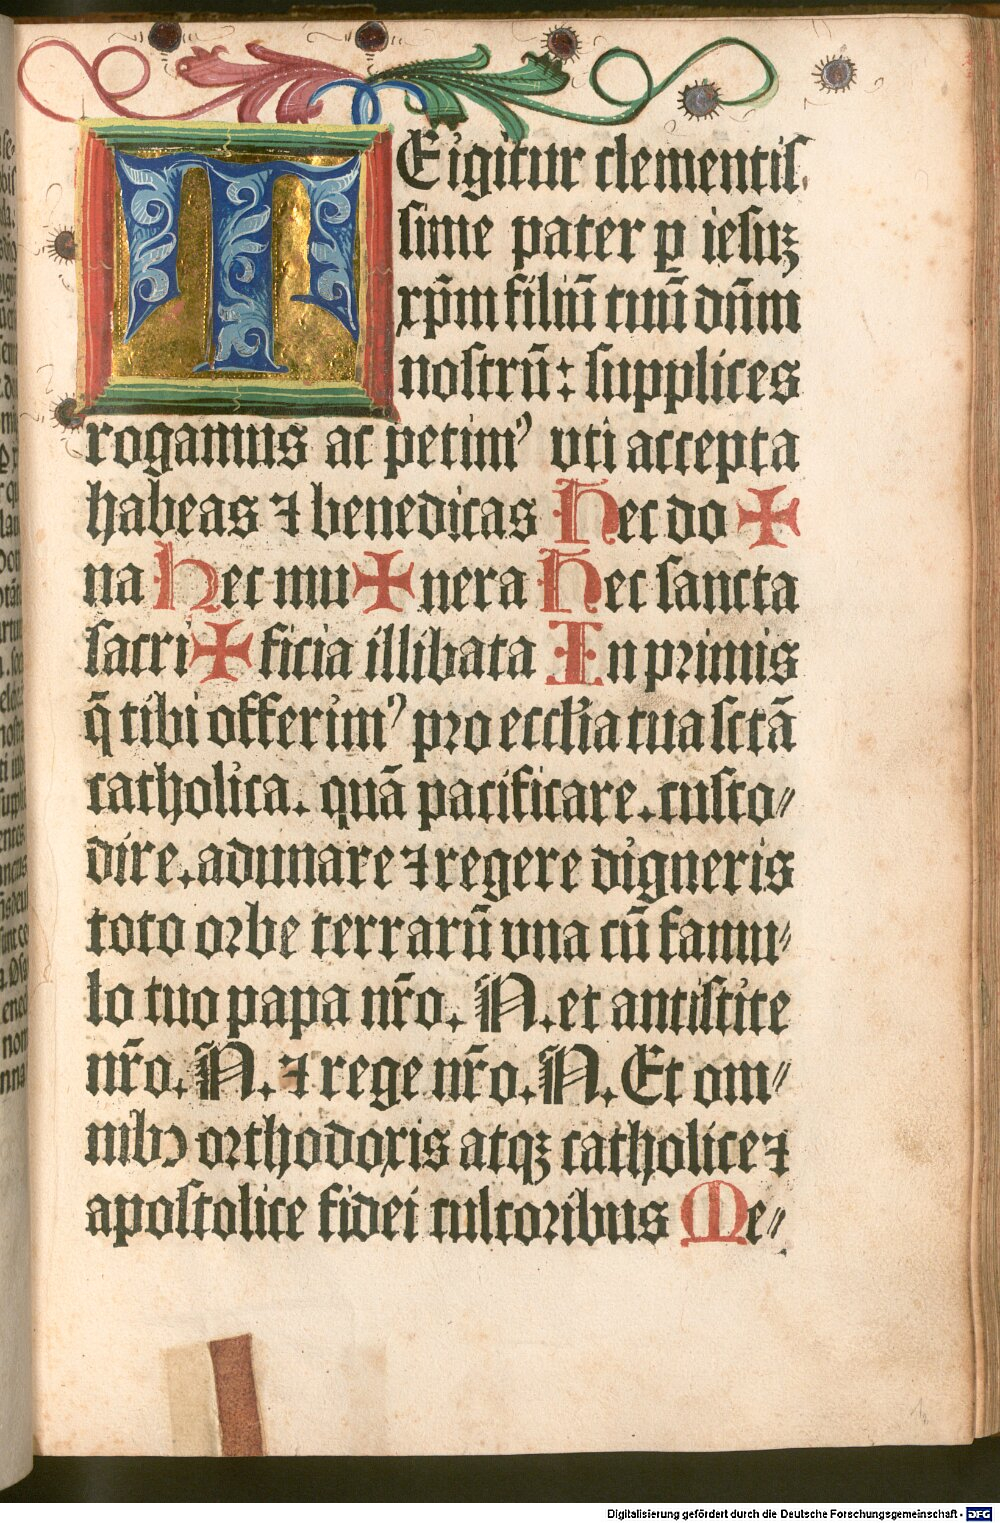 TE igitur clementiſ
ſime pater ꝑ ieſuꝫ
xp̄m filiū tuū dn̄m
noſtrū: ſupplices
rogamus ac petimꝰ vti accepta
habeas ⁊ benedicas Hec do ✠
na Hec mu ✠ nera Hec ſancta
ſacri ✠ ficia illibata In primis
q̄ tibi offerimꝰ pro eccl̄ia tua ſctā
catholica. quā pacificare. cuſto⸗
dire. adunare ⁊ regere digneris
toto orbe terrarū vna cū famu⸗
lo tuo papa nr̄o. N. et antiſtite
nr̄o. N. ⁊ rege nr̄o. N. Et om⸗
nibꝰ orthodoxis atqꝫ catholice ⁊
apoſtolice fidei cultoribus Me⸗
Digitalisierung gefördert durch die Deutsche Forschungsgemeinschaft - DFG